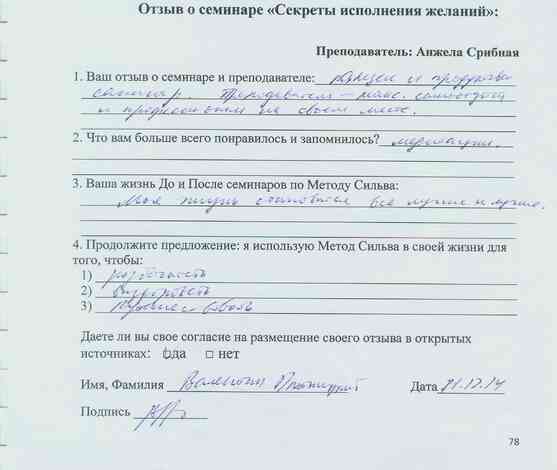 Отзыв о семинаре «Секреты исполнения желаний»:
Преподаватель: Анжела Срибная
1. Ваш отзыв о семинаре и преподавателе:
семинар. Преподаватель –
и профессионал на своем месте.
2. Что вам больше всего понравилось и запомнилось? медитации.
3. Ваша жизнь До и После семинаров по Методу Сильва:
Моя жизнь становится всё лучше и лучше.
4. Продолжите предложение: я использую Метод Сильва в своей жизни для
того, чтобы:
1)
2)
3)
Даете ли вы свое согласие на размещение своего отзыва в открытых
источниках: □да □ нет
Имя, Фамилия Валентин
Дата 21.12.14
Подпись
78